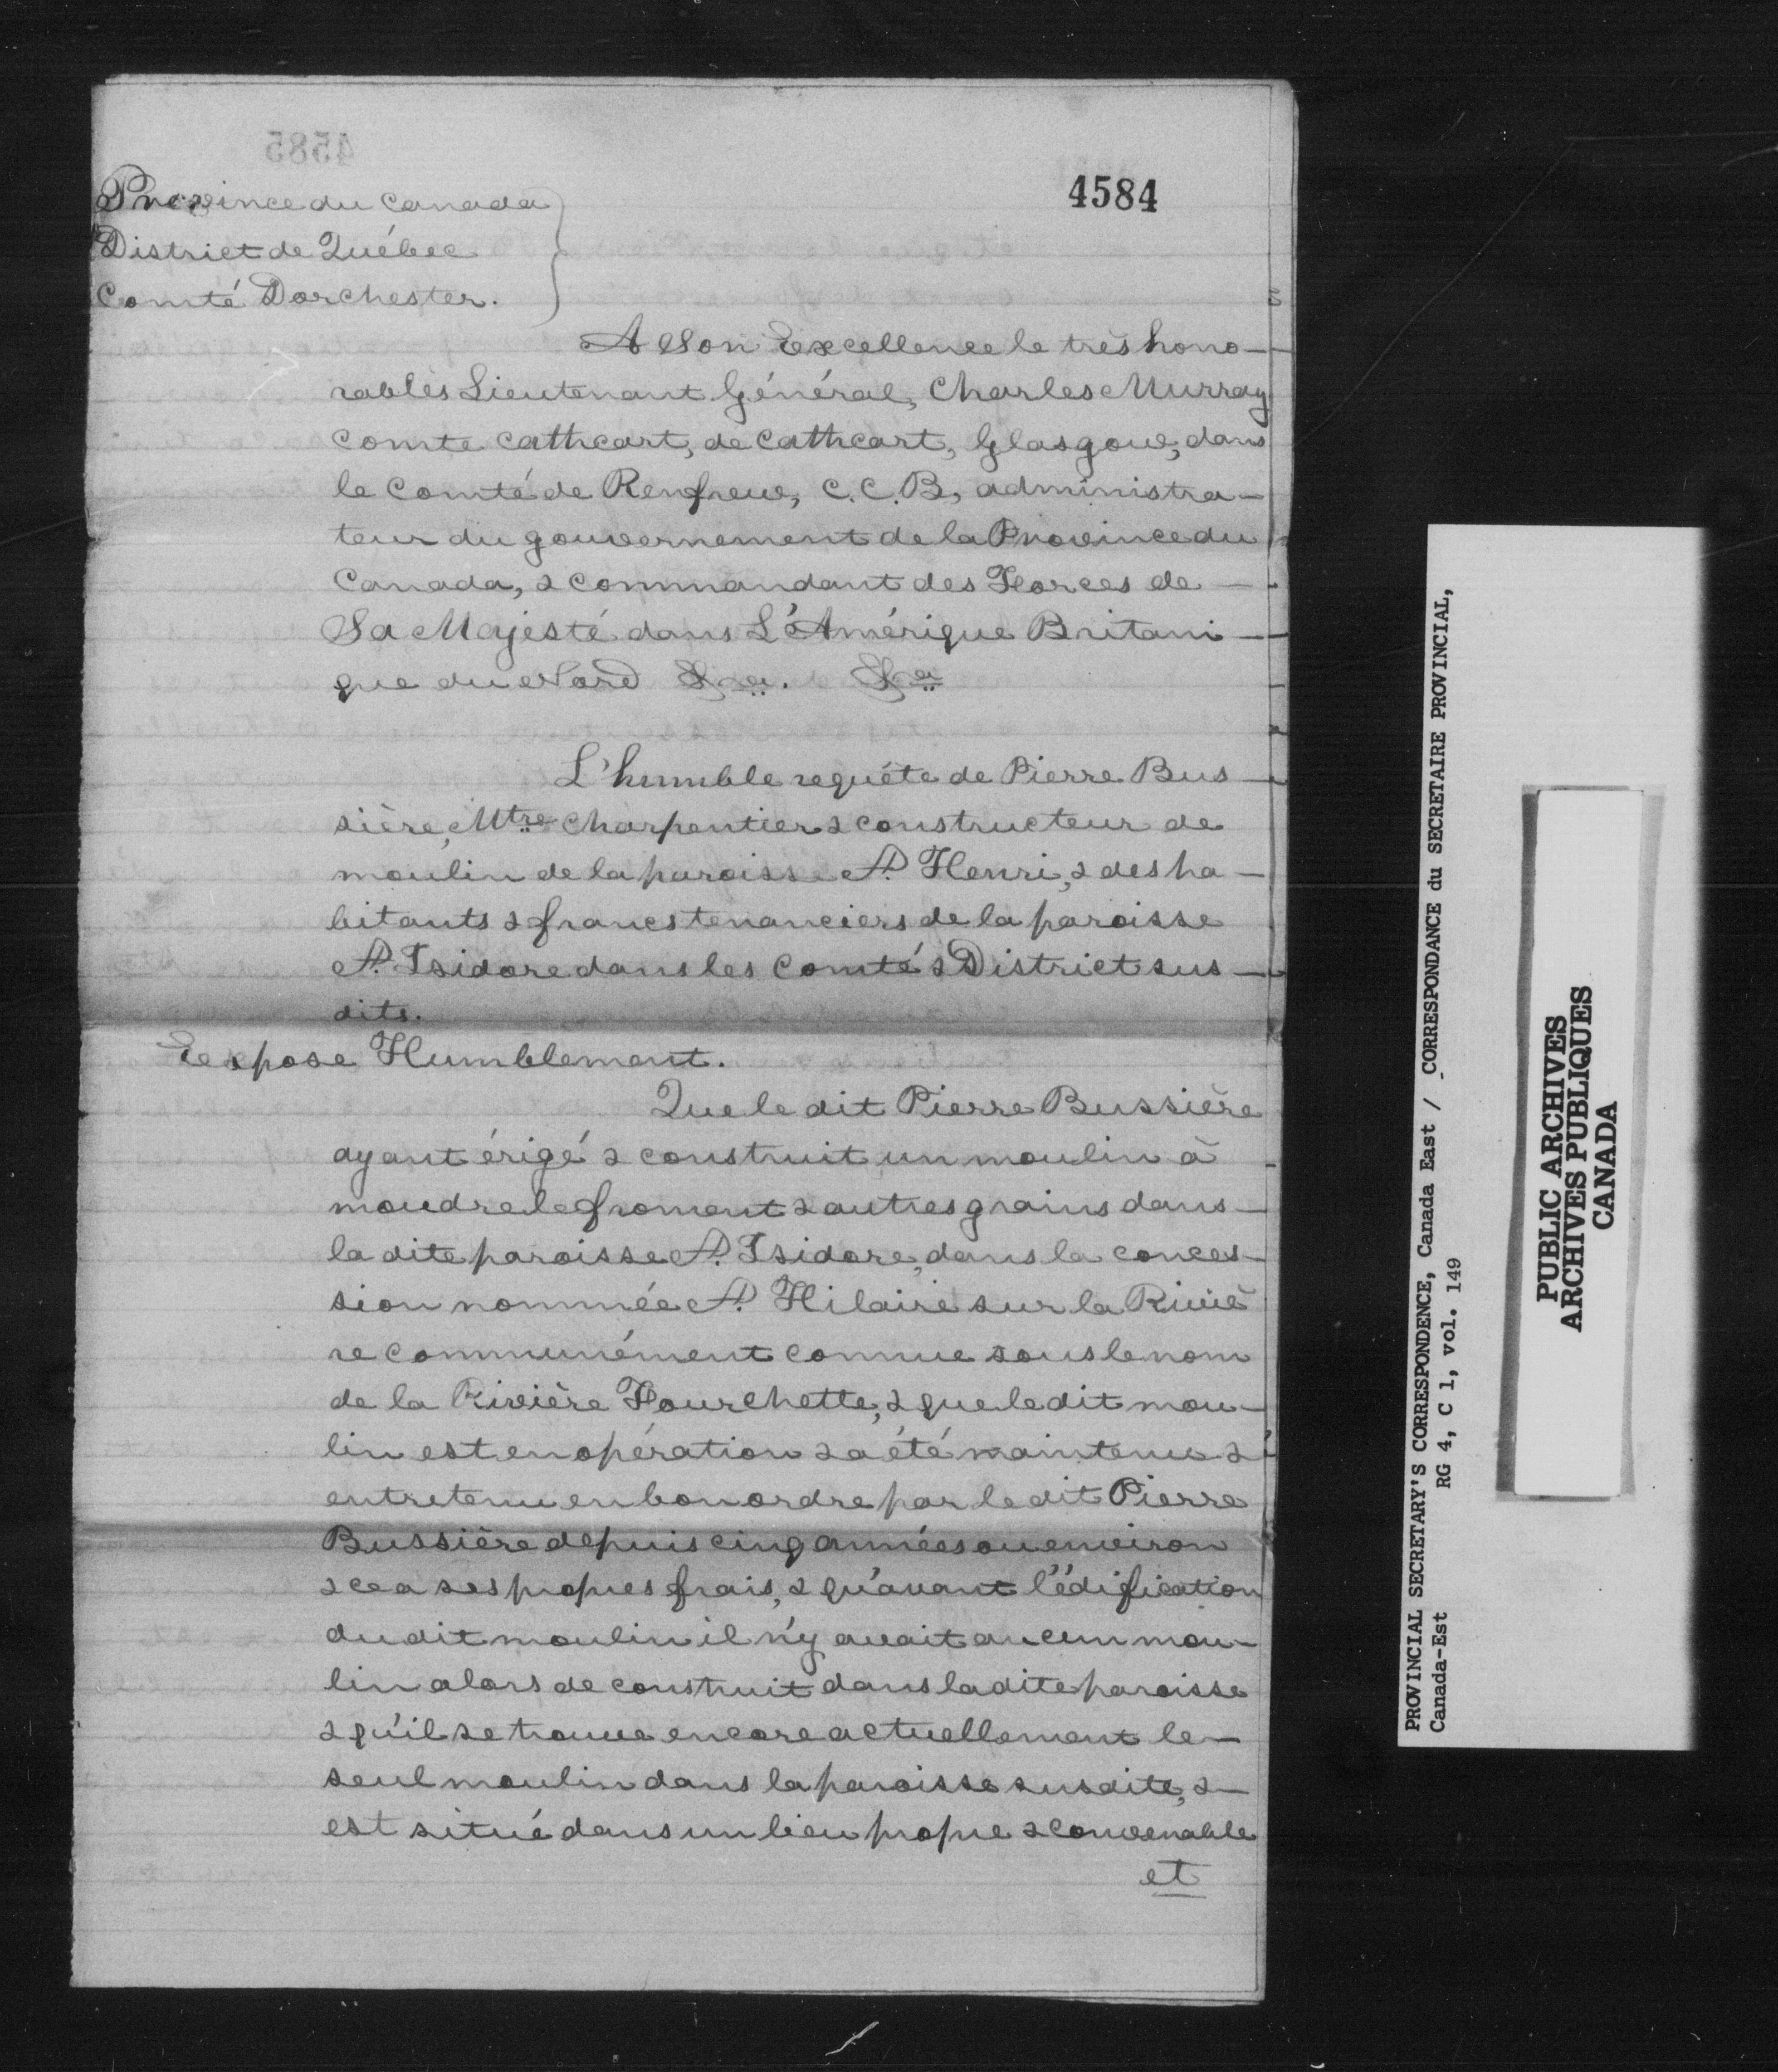 4584
Province du Canada
District de Québec
Comté Dorchester.
A Son Excellence le très hono-
rables Lieutenant Général, Charles Murray
Comte Cathcart, de Cathcart, Glasgow, dans
le Comté de Renfrew, C.C.B, administra-
teur du gouvernement de la Province du
Canada, & commandant des Forces de
Sa Majesté dans L'Amérique Britani-
que du Nord &ca. &ca
L'humble requête de Pierre Bus
sière, Mtre Charpentier & constructeur de
moulin de la paroisse St. Henri, & des ha-
bitants & francs tenanciers de la paroisse
St. Isidore dans les Comté & District sus-
dits.
Expose Humblement.
Que le dit Pierre Bussière
ayant érigé & construit un moulin à
moudre le froment & autres grains dans
la dite paroisse St. Isidore, dans la conces-
sion nommée St. Hilaire sur la Riviè
re communément connue sous le nom
de la Rivière Fourchette, & que le dit mou-
lin est en opération & a été maintenu &
entretenu en bon ordre par le dit Pierre
Bussière depuis cinq années ou environ
& ce a ses propres frais, & qu'avant l'édification
du dit moulin il n'y avait aucun mou-
lin alors de construit dans la dite paroisse
& qu'il se trouve encore actuellement le-
seul moulin dans la paroisse susdite, &-
est situé dans un lieu propre & convenable
et
PROVINCIAL SECRETARY'S CORRESPONDENCE, Canada East / CORRESPONDANCE du SECRETAIRE PROVINCIAL,
Canada-Est RG 4, C 1, vol. 149
PUBLIC ARCHIVES
ARCHIVES PUBLIQUES
CANADA